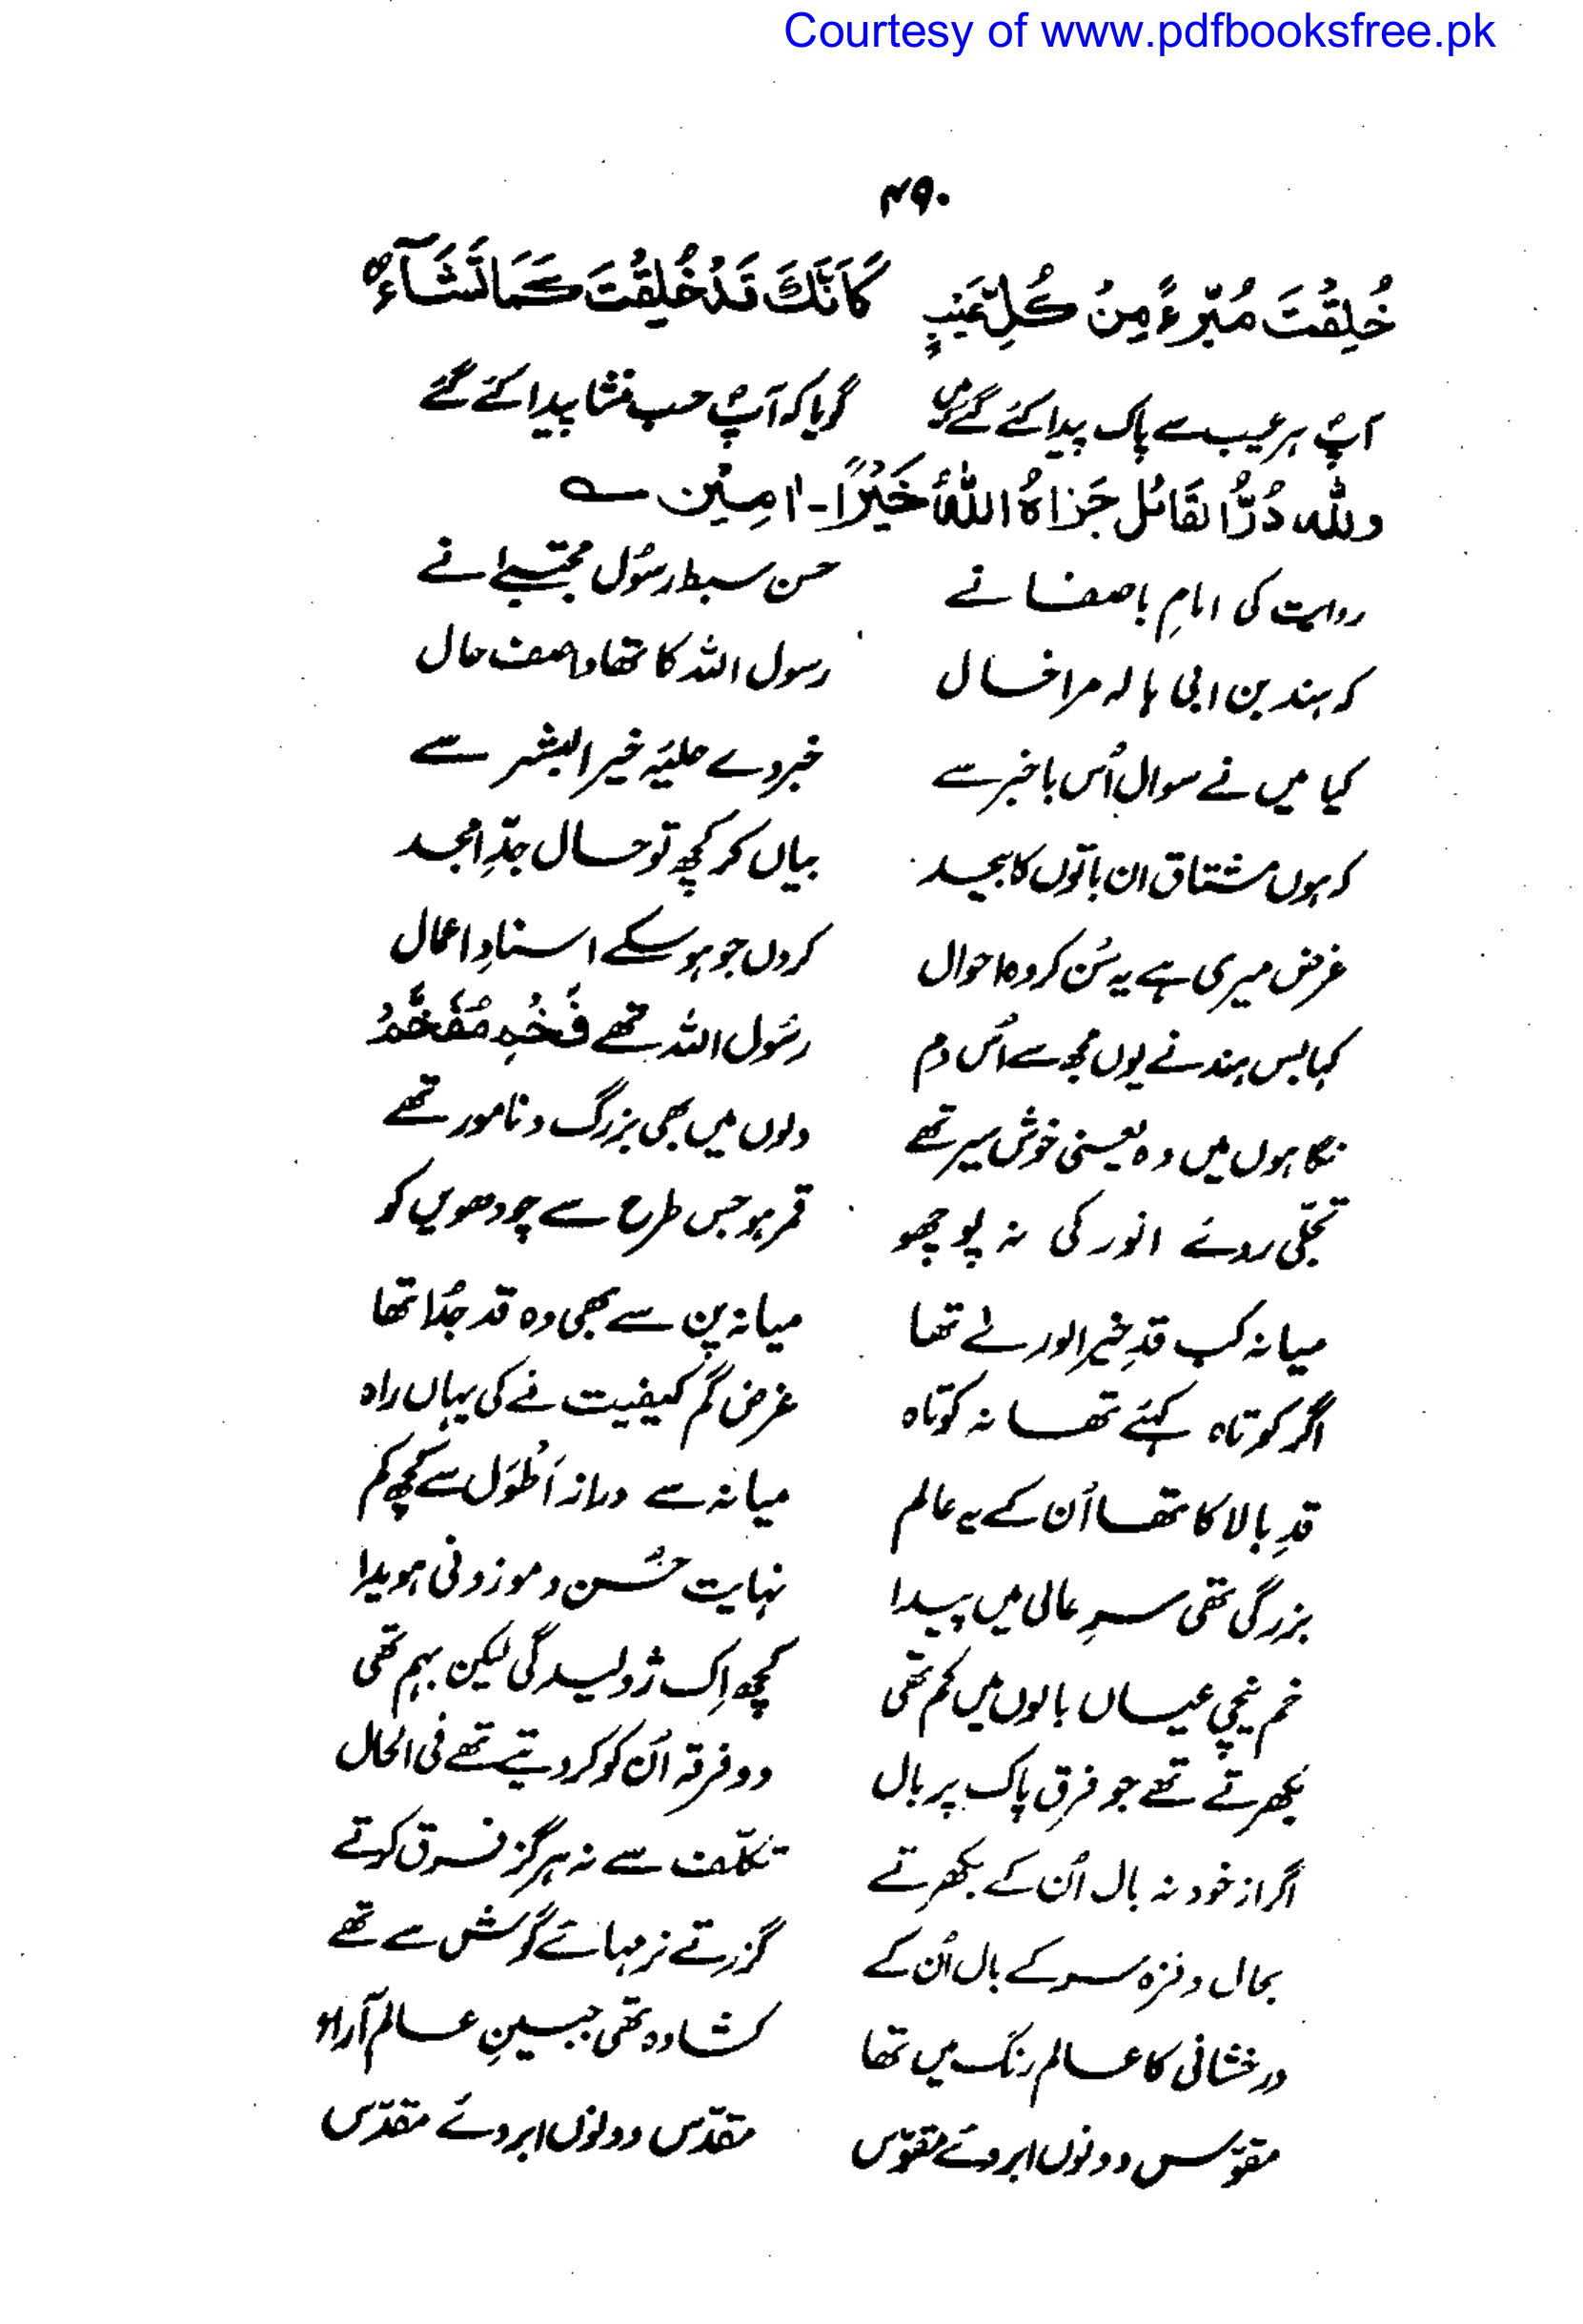 Courtesy of www.pdfbooksfree.pk
۴۹۰
خُلِقْتَ مُبَرَّءً مِنْ كُلِّ عَيْبٍ كَاَنَّكَ قَدْ خُلِقْتَ كَمَا تَشَآءُ
آپؐ ہر عیب سے پاک پیدا کئے گئے ہیں گویا کہ آپؐ حسب منشا پیدا کئے گئے
وللہ دُرُّ القَائل جَزَاہُ اللہُ خَیْرًا - اٰمِیْن ؎
روایت کی امامِ باصفا نے حسن سبط رسُول مجتبےٰ نے
کہ ہند بن ابی ہالہ مرا خال رسول اللہ کا تھا واصف حال
کیا میں نے سوال اُس باخبر سے خبر دے حلیۂ خیر البشر سے
کہ ہوں مشتاق ان باتوں کا بیحد بیاں کر کچھ تو حال جدِّ امجد
غرض میری ہے یہ سُن کر وہ احوال کروں جو ہو سکے اسنادِ اعمال
کہا بس ہند نے یوں مجھ سے اُس دم رسُول اللہ تھے فَخْمِ مُفَخَّمْ
نگاہوں میں وہ یعنی خوش سیر تھے دلوں میں بھی بزرگ و نامور تھے
تجلّی روئے انور کی نہ پوچھو قمر ہو جس طرح سے چودھویں کو
میانہ کب قدِ خیر الوریٰ تھا میانہ پن سے بھی وہ قد جُدا تھا
اگر کوتاہ کہئے تھا نہ کوتاہ غرض گم کیفیت نے کی یہاں راہ
قدِ بالا کا تھا اُن کے یہ عالم میانہ سے دراز اَطْوَل سے کچھ کم
بزرگی تھی سرِ عالی میں پیدا نہایت حُسن و موزونی ہویدا
خم پیچی عیاں بالوں میں کم تھی کچھ اِک ژولیدگی لیکن بہم تھی
بکھرتے تھے جو فرقِ پاک پر بال دو فرقہ اُن کو کر دیتے تھے فی الحال
اگر از خود نہ بال اُن کے بکھرتے تکلّف سے نہ ہرگز فرق کرتے
بحال وفرہ سر کے بال اُن کے گزرتے نرمہائے گوش سے تھے
درخشانی کا عالم رنگ میں تھا کشادہ تھی جبینِ عالم آراء
مقوّس دونوں ابروئے مقوّس مقدّس دونوں ابروئے مقدّس